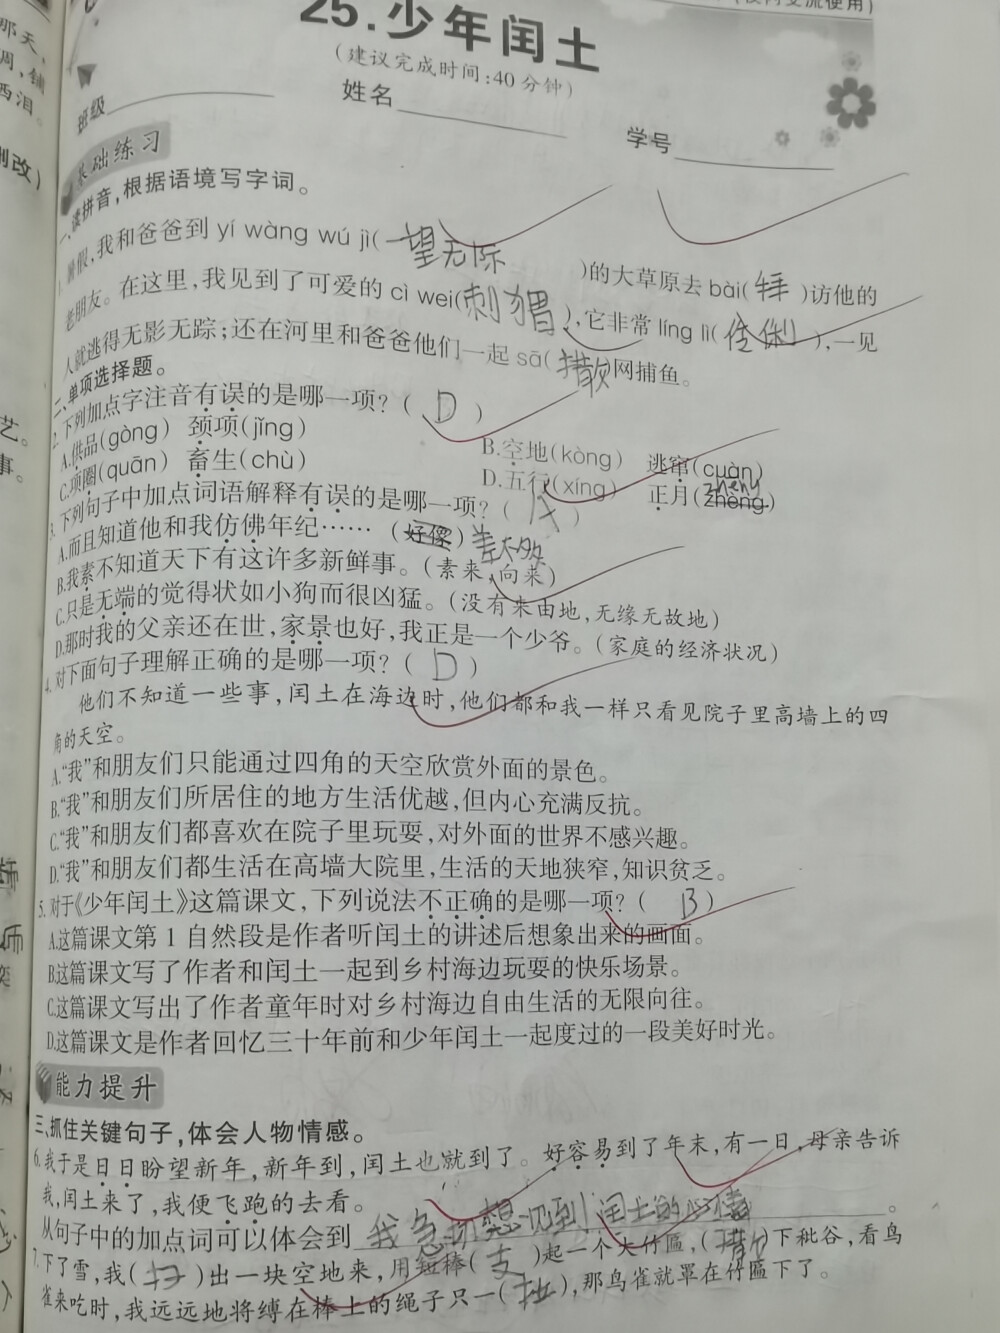 25.少年闰土
(建议完成时间:40分钟)
班级
姓名
学号
基础练习
一、读拼音,根据语境写字词。
暑假,我和爸爸到 yí wàng wú jì(一望无际)的大草原去 bài(拜)访他的
老朋友。在这里,我见到了可爱的 cì wei(刺猬),它非常 líng lì(伶俐),一见
人就逃得无影无踪;还在河里和爸爸他们一起 sā(撒)网捕鱼。
二、单项选择题。
2.下列加点字注音有误的是哪一项?( D )
A.供品(gòng) 颈项(jǐng)
B.空地(kòng) 逃窜(cuàn)
C.项圈(quān) 畜生(chù)
D.五行(xíng) 正月(zhèng) zhēng
3.下列句子中加点词语解释有误的是哪一项?( A )
A.而且知道他和我仿佛年纪……(好像)差不多
B.我素不知道天下有这许多新鲜事。(素来,向来)
C.只是无端的觉得状如小狗而很凶猛。(没有来由地,无缘无故地)
D.那时我的父亲还在世,家景也好,我正是一个少爷。(家庭的经济状况)
4.对下面句子理解正确的是哪一项?( D )
他们不知道一些事,闰土在海边时,他们都和我一样只看见院子里高墙上的四
角的天空。
A.“我”和朋友们只能通过四角的天空欣赏外面的景色。
B.“我”和朋友们所居住的地方生活优越,但内心充满反抗。
C.“我”和朋友们都喜欢在院子里玩耍,对外面的世界不感兴趣。
D.“我”和朋友们都生活在高墙大院里,生活的天地狭窄,知识贫乏。
5.对于《少年闰土》这篇课文,下列说法不正确的是哪一项?( B )
A.这篇课文第1自然段是作者听闰土的讲述后想象出来的画面。
B.这篇课文写了作者和闰土一起到乡村海边玩耍的快乐场景。
C.这篇课文写出了作者童年时对乡村海边自由生活的无限向往。
D.这篇课文是作者回忆三十年前和少年闰土一起度过的一段美好时光。
能力提升
三、抓住关键句子,体会人物情感。
6.我于是日日盼望新年,新年到,闰土也就到了。好容易到了年末,有一日,母亲告诉
我,闰土来了,我便飞跑的去看。
从句子中的加点词可以体会到我急切想见到闰土的心情。
7.下了雪,我(扫)出一块空地来,用短棒(支)起一个大竹匾,(撒)下秕谷,看鸟
雀来吃时,我远远地将缚在棒上的绳子只一(拉),那鸟雀就罩在竹匾下了。